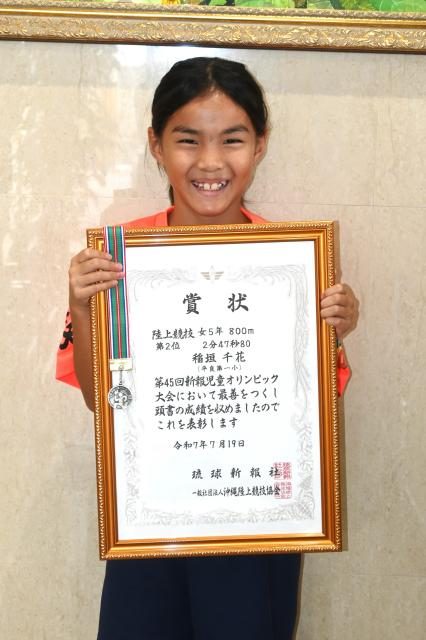 賞状
陸上競技 女5年 800m
第2位 2分47秒80
稲垣 千花
(平良第一小)
第45回新報児童オリンピック
大会において最善をつくし
頭書の成績を収めましたので
これを表彰します
令和7年7月19日
琉球新報社
一般社団法人沖縄陸上競技協会